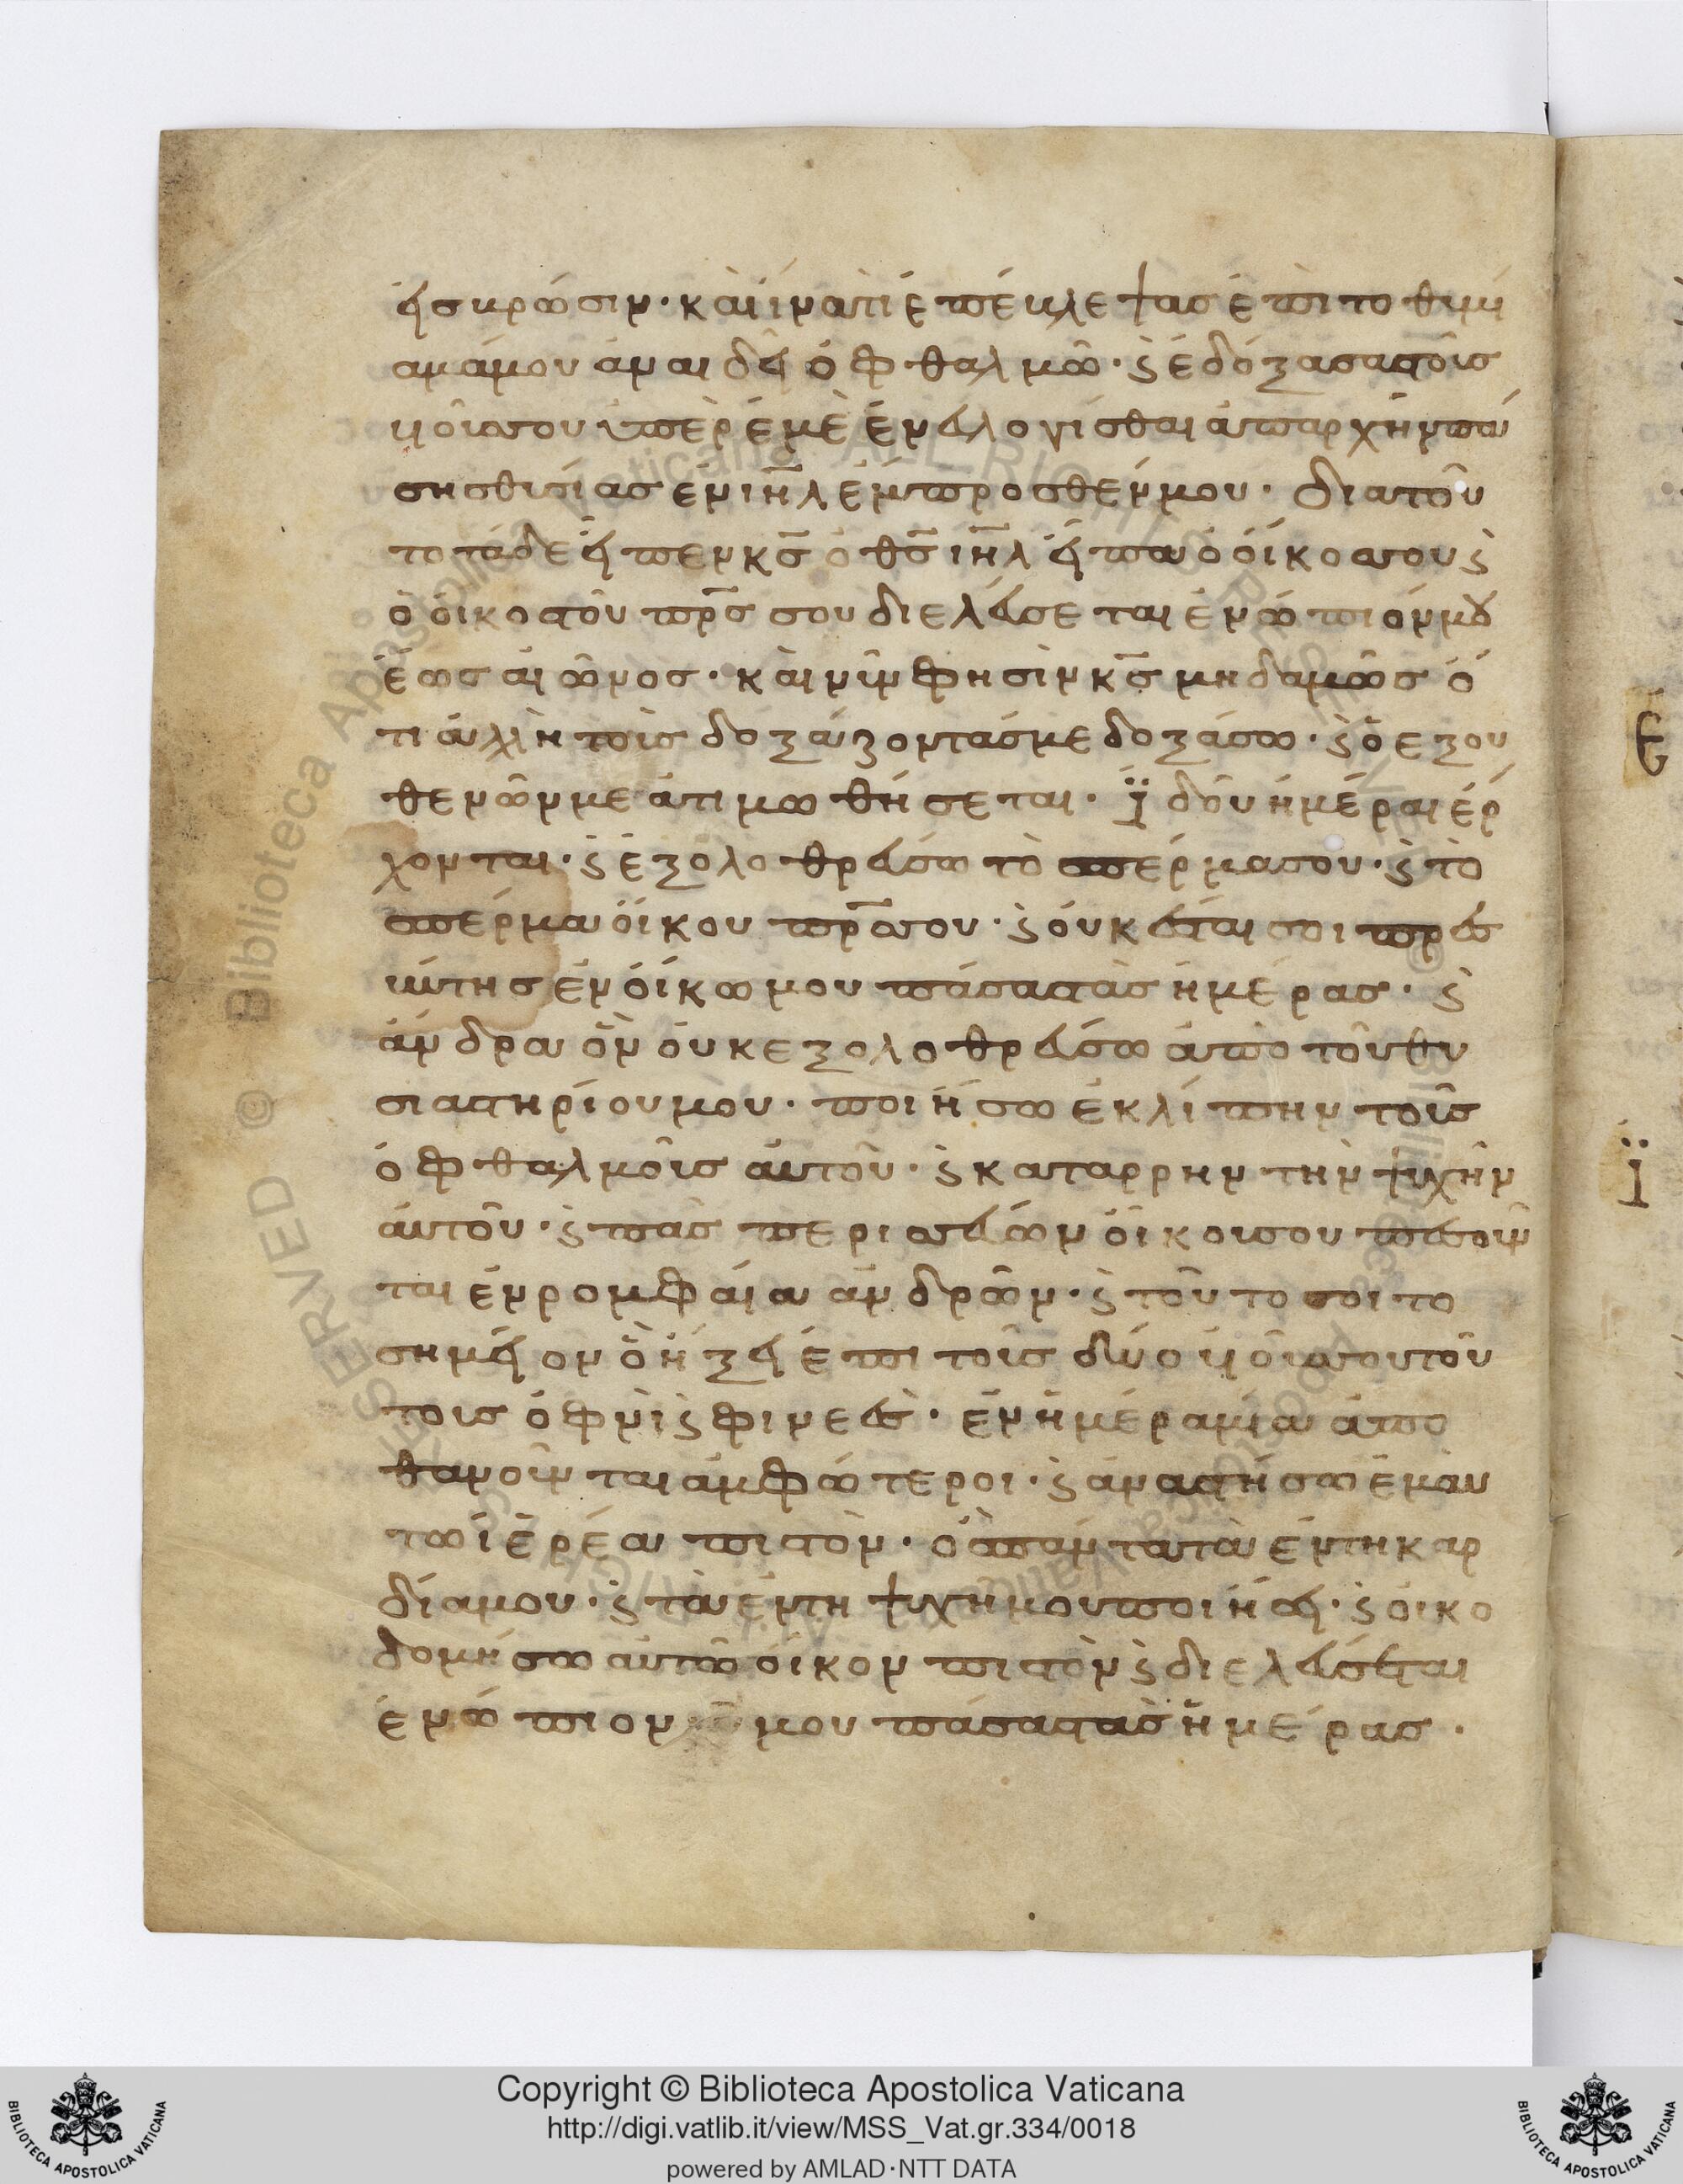 εἰς βρῶσιν· καὶ ἵνα τί ἐπέβλεψας ἐπὶ τὸ θυμί
αμά μου ἀναιδεῖ ὀφθαλμῶ· ϛ ἐδόξασας τοὺς
υἱούς σου ὑπὲρ ἐμὲ ἐνευλογεῖσθαι ἀπαρχὴν πά
σης θυσίας ἐν ιηλ ἔμπροσθέν μου· διατοῦ
το τάδε εἶπεν κς ὁ θς ιηλ εἶπα ὁ οἶκος σου ϛ
ὁ οἶκος τοῦ πρς σου διελεύσεται ἐνώπιόν μου
ἕως αἰῶνος· καὶ νῦν φησὶν κς μηδαμῶς ὅ
τι ἀλλὴ τοὺς δοξάζοντάς με δοξάσω· ϛ ὁ εξου
θενῶν με ἀτιμωθήσεται· ϊδοῦ ἡμέραι ἔρ
χονται· ϛ ἐξολοθρεύσω τὸ σπέρμα σου· ϛ τὸ
σπέρμα οἴκου πρς σου· ϛ οὐκ ἔσται σοι πρεσ
βύτης ἐν οἴκω μου πάσας τὰς ἡμέρας· ϛ
ἄνδρα ὃν οὐκ εξολοθρεύσω ἀπὸ τοῦ θυ
σιαστηρίου μου· ποιήσω ἐκλίπην τοὺς
ὀφθαλμοὺς αὐτοῦ· ϛ καταρρην τὴν ψυχὴν
αὐτοῦ· ϛ πᾶς περισσεύων οἴκου σου πεσοῦν
ται ἐν ρομφαία ἀνδρῶν· ϛ τοῦτο σοι το
σημεῖον ὃ ἥξει ἐπὶ τοὺς δύο υἱούς σου τού
τους ὀφνὶ ϛ φινεὲς· ἐν ἡμέρα μιᾶ ἀπο
θανοῦνται ἀμφότεροι· ϛ ἀναστήσω ἐμαυ
τῶ ἱερέα πιστὸν· ὃς πάντα τὰ ἐν τη καρ
δία μου· ϛ τὰ ἐν τη ψυχη μου ποιήσει· ϛ οἰκο
δομήσω αὐτῶ οἶκον πιστὸν ϛ διελεύσεται
ἐνώπιον χυ μου πάσας τὰς ἡμέρας·
Ε
Ϊ
Copyright © Biblioteca Apostolica Vaticana
http://digi.vatlib.it/view/MSS_Vat.gr.334/0018
powered by AMLAD·NTT DATA
BIBLIOTECA APOSTOLICA VATICANA
BIBLIOTECA APOSTOLICA VATICANA